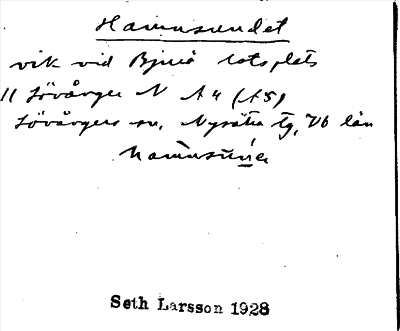 Hamnsundet
vik vid Bjurö lotsplats
11 Lövånger N A4 (A5)
Lövångers sn, Nysätra tg, Vb län
Seth Larsson 1928